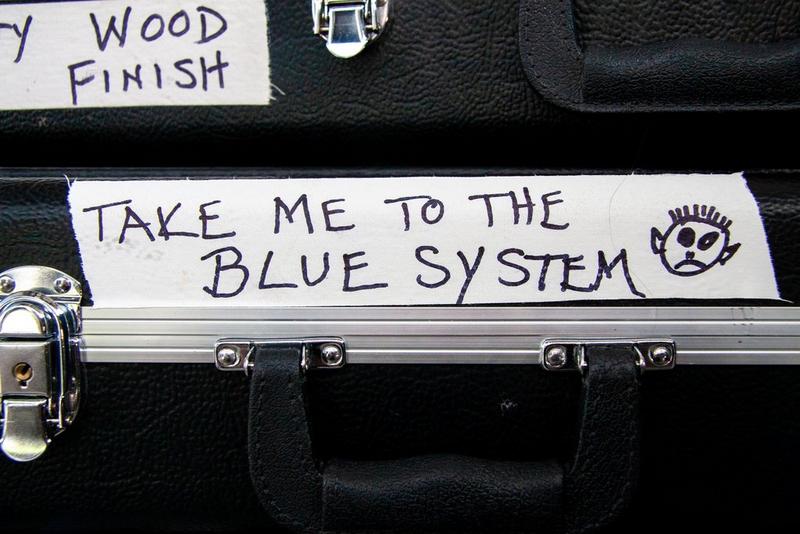 TY WOOD
FINISH
TAKE ME TO THE
BLUE SYSTEM